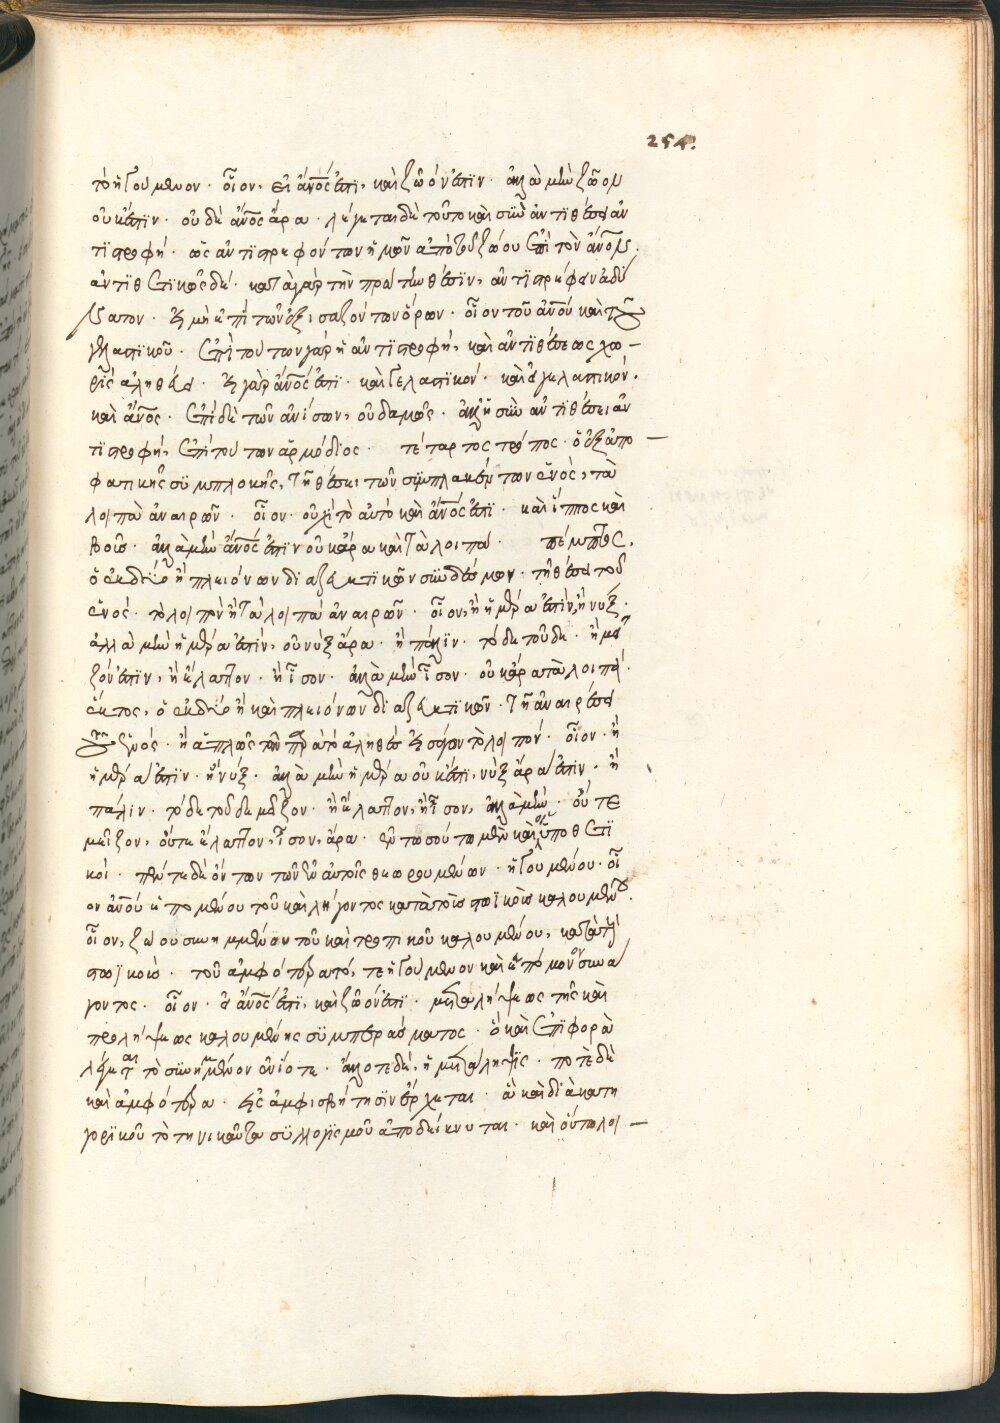 254.
τὸ ἡγούμενον · οἷον, εἰ ἄνος ἐστι, καὶ ζῶόν ἐστιν · ἀλλὰ μὴν ζῶον
οὐκ ἔστιν · οὐδὲ ἄνος ἄρα · λέγεται δὲ τοῦτο καὶ σὺν ἀντιθέσει ἀν
τιστροφή · ὡς ἀντιστρεφόντων ἡμῶν ἀπὸ τοῦ ζώου ἐπὶ τὸν ἄνον
ἀντιθετικῶς δέ · κατὰ γὰρ τὴν πρώτην θέσιν, ἀντιστρέφειν ἀδύ
νατον · εἰ μὴ ἐπὶ τῶν ἐξισαζόντων ὅρων · οἷον τοῦ ἀνου καὶ τοῦ
γελαστικοῦ · ἐπὶ τούτων γὰρ ἡ ἀντιστροφή, καὶ ἀντιθέσεως χω
ρὶς ἀληθής · εἰ γὰρ ἄνος ἐστι · καὶ γελαστικόν · καὶ εἰ γελαστικόν ·
καὶ ἄνος · ἐπὶ δὲ τῶν ἀνίσων, οὐδαμῶς · ἀλλ' ἡ σὺν ἀντιθέσει ἀν
τιστροφή, ἐπὶ τούτων ἁρμόδιος · τέταρτος τρόπος · ὁ ἐξ ἀπο
φατικῆς συμπλοκῆς, τῇ θέσει τῶν συμπλακέντων ἑνὸς, τὰ
λοιπὰ ἀναιρῶν · οἷον · οὐχὶ τὸ αὐτὸ καὶ ἄνος ἐστι · καὶ ἵππος καὶ
βοῦς · ἀλλὰ μὴν ἄνος ἐστιν οὐκ ἄρα καὶ τὰ λοιπά · πέμπτος,
ὁ ἐκ δύο ἢ πλειόνων διαζευκτικῶν συνδέσμων · τῇ θέσει τοῦ
ἑνός · τὸ λοιπὸν ἢ τὰ λοιπὰ ἀναιρῶν · οἷον, ἢ ἡμέρα ἐστὶν, ἢ νύξ ·
ἀλλὰ μὴν ἡμέρα ἐστὶν, οὐ νὺξ ἄρα · ἢ πάλιν · τόδε τοῦδε · ἢ μεῖ
ζόν ἐστιν, ἢ ἔλαττον · ἢ ἴσον · ἀλλὰ μὴν ἴσον · οὐκ ἄρα τὰ λοιπά ·
ἕκτος, ὁ ἐκ δύο ἢ καὶ πλειόνων διαζευκτικῶν · τῇ ἀναιρέσει
τοῦ ἑνός · ἢ ἁπλῶς τῶν παρὰ τὸ ἀληθὲς εἰσάγων τὸ λοιπόν · οἷον · ἢ
ἡμέρα ἐστιν · ἢ νύξ · ἀλλὰ μὴν ἡμέρα οὐκ ἔστι, νὺξ ἄρα ἐστιν · ἢ
πάλιν · τόδε τοῦδε μεῖζον · ἢ ἔλαττον, ἢ ἴσον, ἀλλὰ μὴν · οὔτε
μεῖζον, οὔτε ἔλαττον, ἴσον, ἄρα · ἐν τοσούτω μὲν καὶ οἱ ὑποθετι
κοί · πέντε δὲ ὄντων τῶν ἐν αὐτοῖς θεωρουμένων · ἡγουμένου · οἷ
ον ἀνου ἑπομένου τοῦ καὶ λήγοντος κατὰ τοῖς στωϊκοῖς καλουμένου ·
οἷον, ζώου συνημμένου τοῦ καὶ τροπικοῦ καλουμένου, κατὰ τοὺς
στωϊκοὺς · τοῦ ἀμφότερα τό, τε ἡγούμενον καὶ ἑπόμενον συνά
γοντος · οἷον · εἰ ἄνος ἐστι, καὶ ζῶόν ἐστι · μεταλήψεως τῆς καὶ
προλήψεως καλουμένης συμπεράσματος · ὃ καὶ ἐπιφορὰ
λέγεται τὸ συνημμένον ἐνίοτε · ἄλλοτε δὲ, ἡ μετάληψις · ποτὲ δὲ
καὶ ἀμφότερα · εἰς ἀμφισβήτησιν ἔρχεται · ἃ καὶ διὰ κατη
γορικοῦ τὸ τηνικαῦτα συλλογισμοῦ ἀποδείκνυται · καὶ οὕτω λοι